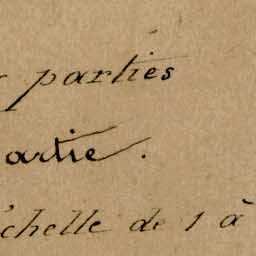 parties
artie.
échelle de 1 à